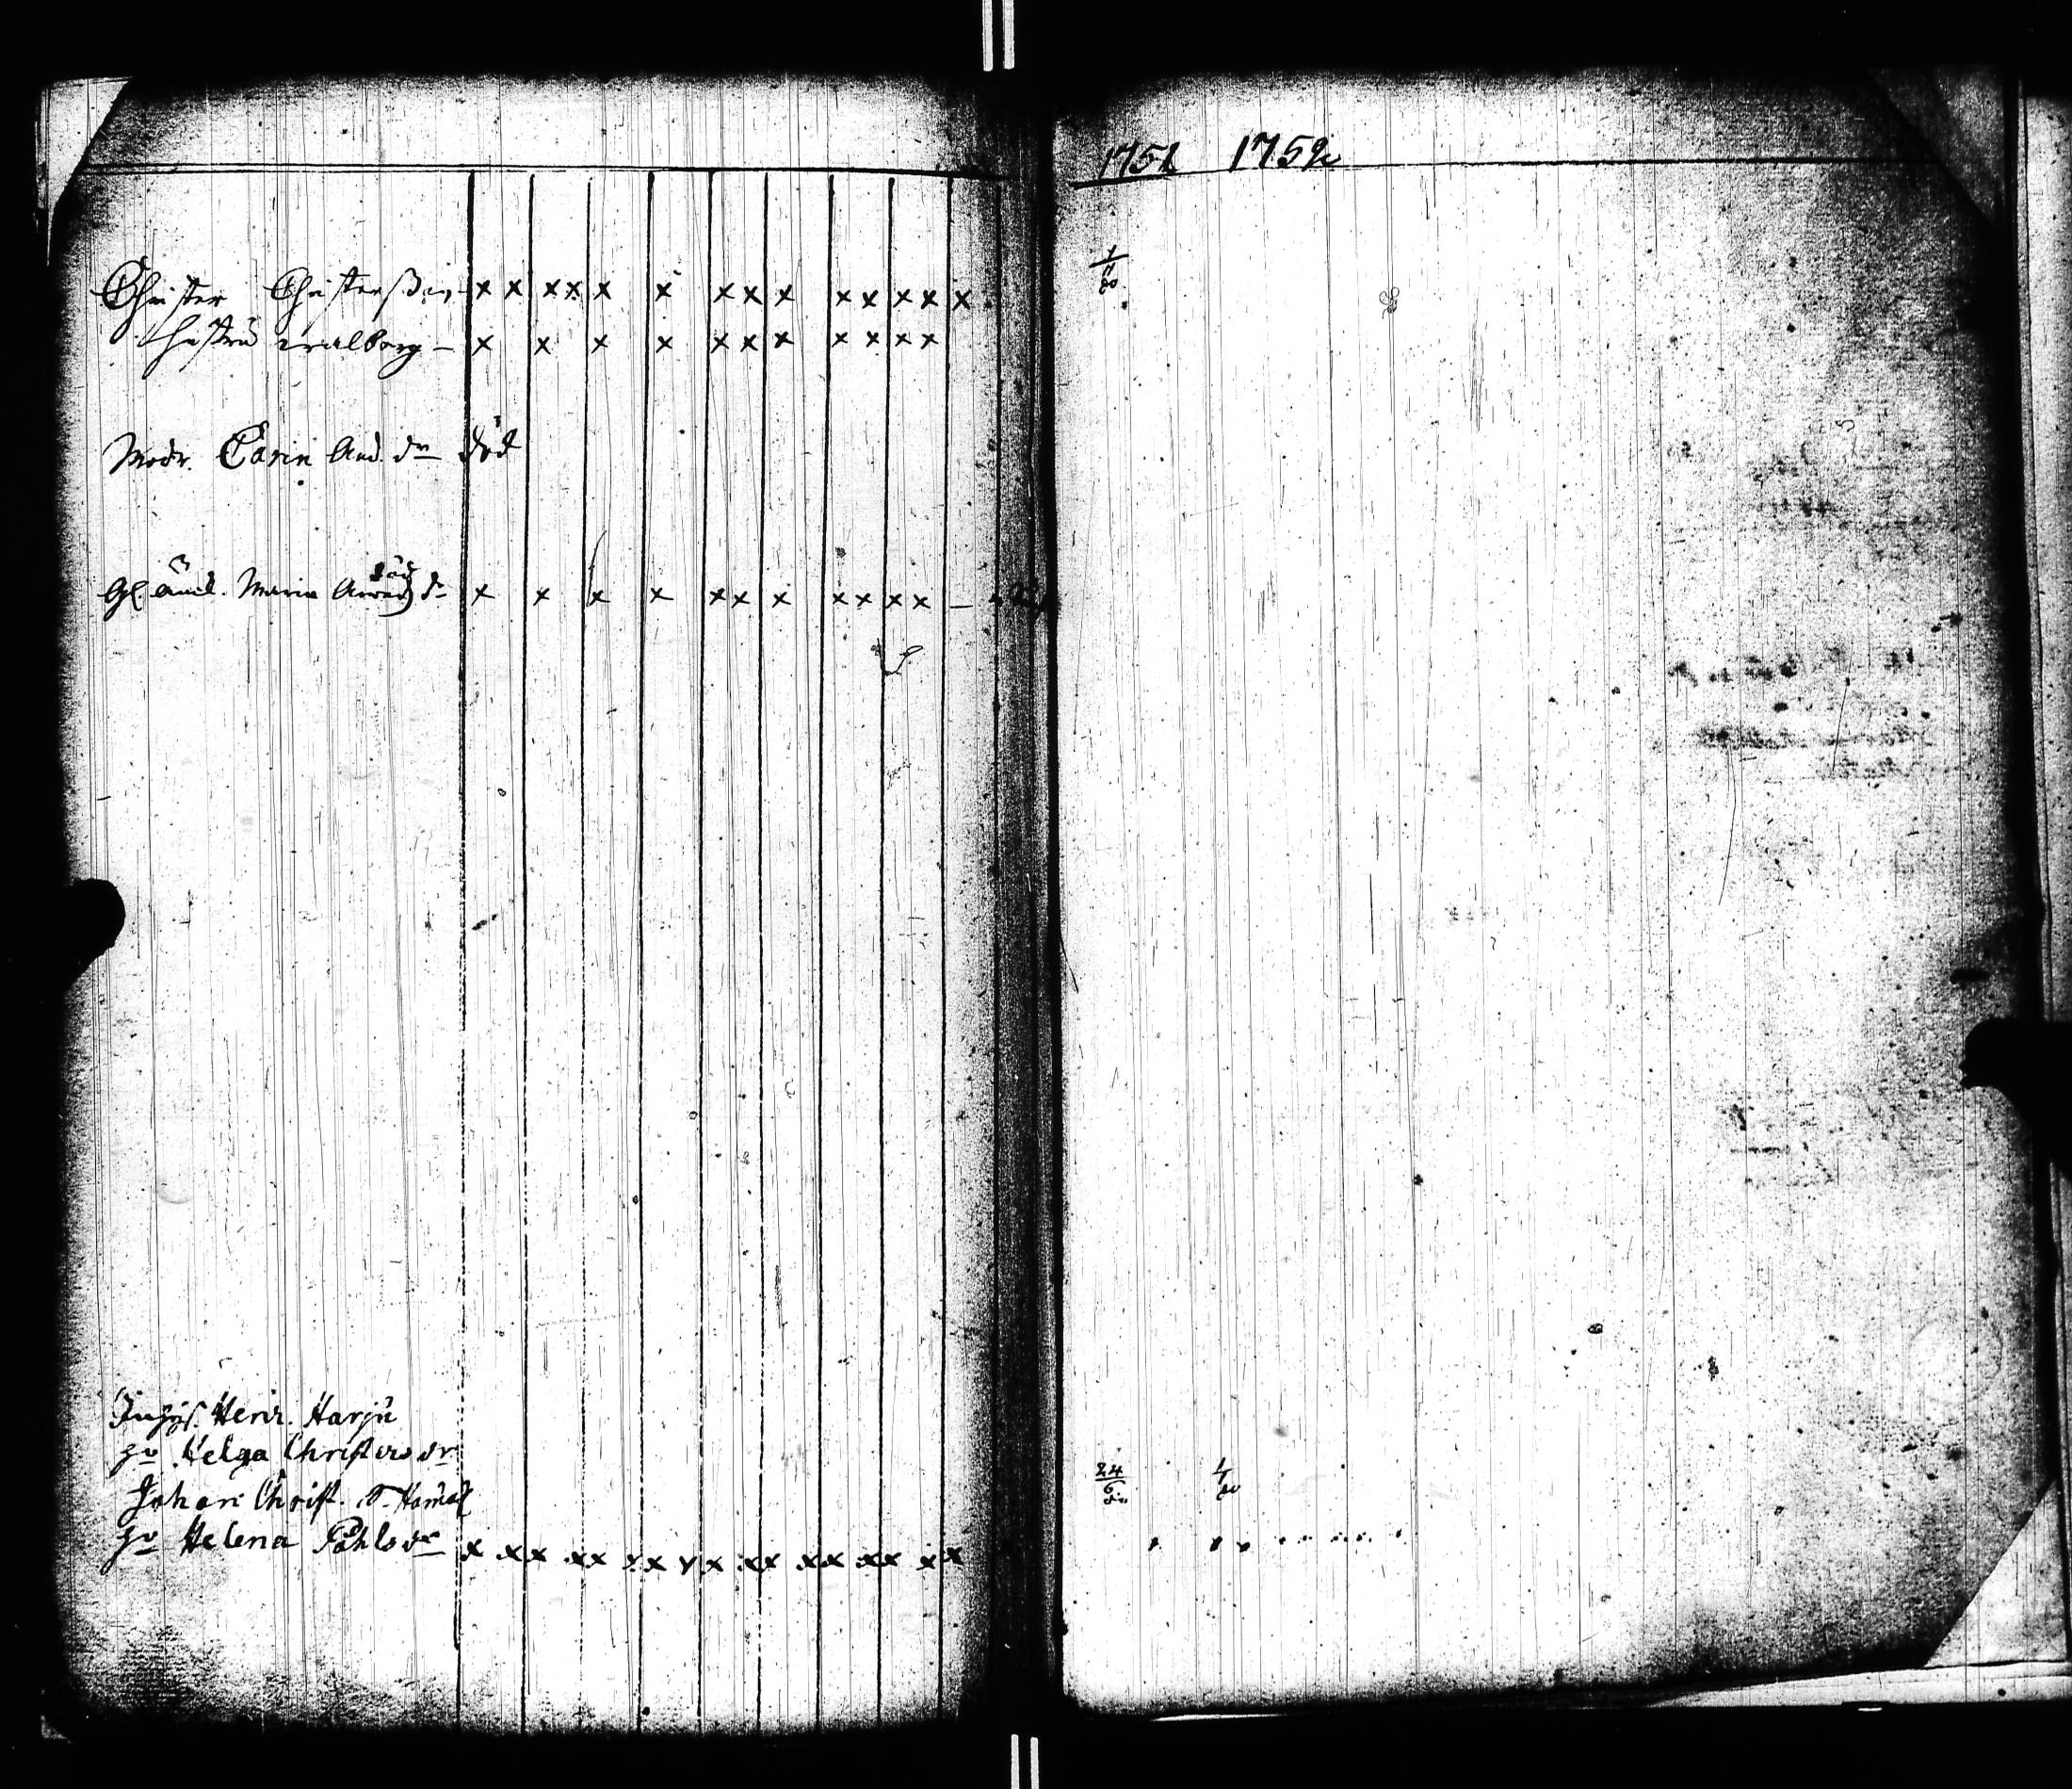 Christer Christersson x x x x x x x x x x x x x x
Hustru Walborg – x x x x x x x x x x x
Modr. Carin And. dr död
Maria x x x x x x x x x x x –
Inhys. Henr. Harju
hu Helga Christersdr
Johan Christ. S.
hu Helena Påhlsdr x x x x x x x x x x x x x x x x x x
1758 1759
1
11
24
6
1
1